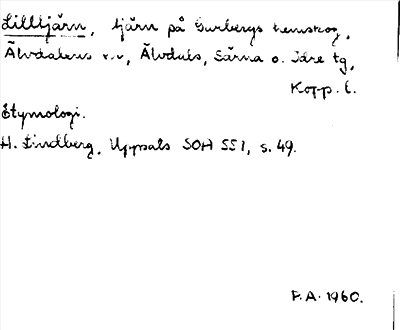 Lilltjärn, tjärn på Gurbergs hemskog,
Älvdalens r.v, Älvdals, Särna o. Idre tg,
Kopp. l.
Etymologi.
H. Lindberg, Uppsals SOH 551, s. 49.
P.A. 1960.